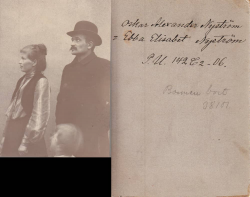 Oskar Alexander Nyström
= Ebba Elisabet Nyström
P.U. 142 C 2 - 06.